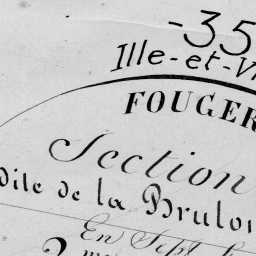 -35
Ille-et-Vi
FOUGER
Section
dite de la Brulo
En Sept
2